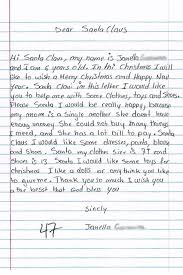 Dear Santa Claus
Hi Santa Claus, my name is Janella
and I am 6 years old. In this Christmas I will
like to wish a Merry Christmas and Happy New
year. Santa Claus in this letter I would like
you to help me with Some Clothes, toys and Shoes.
Please Santa I would be really happy, because
my mom is a single mother She doesn't have
enough money. She could not buy many things
I need, and She has a lot bill to pay. Santa
Claus I would like some dresses, pants, blouse
and Shoes. Santa, my clothes size is 7T and
Shoes is 13. Santa I would like some toys for
christmas. I like a dolls or any think you like
to give me. Thank you so much I wish you
a the best that God bless you
Sincly
Janella
47